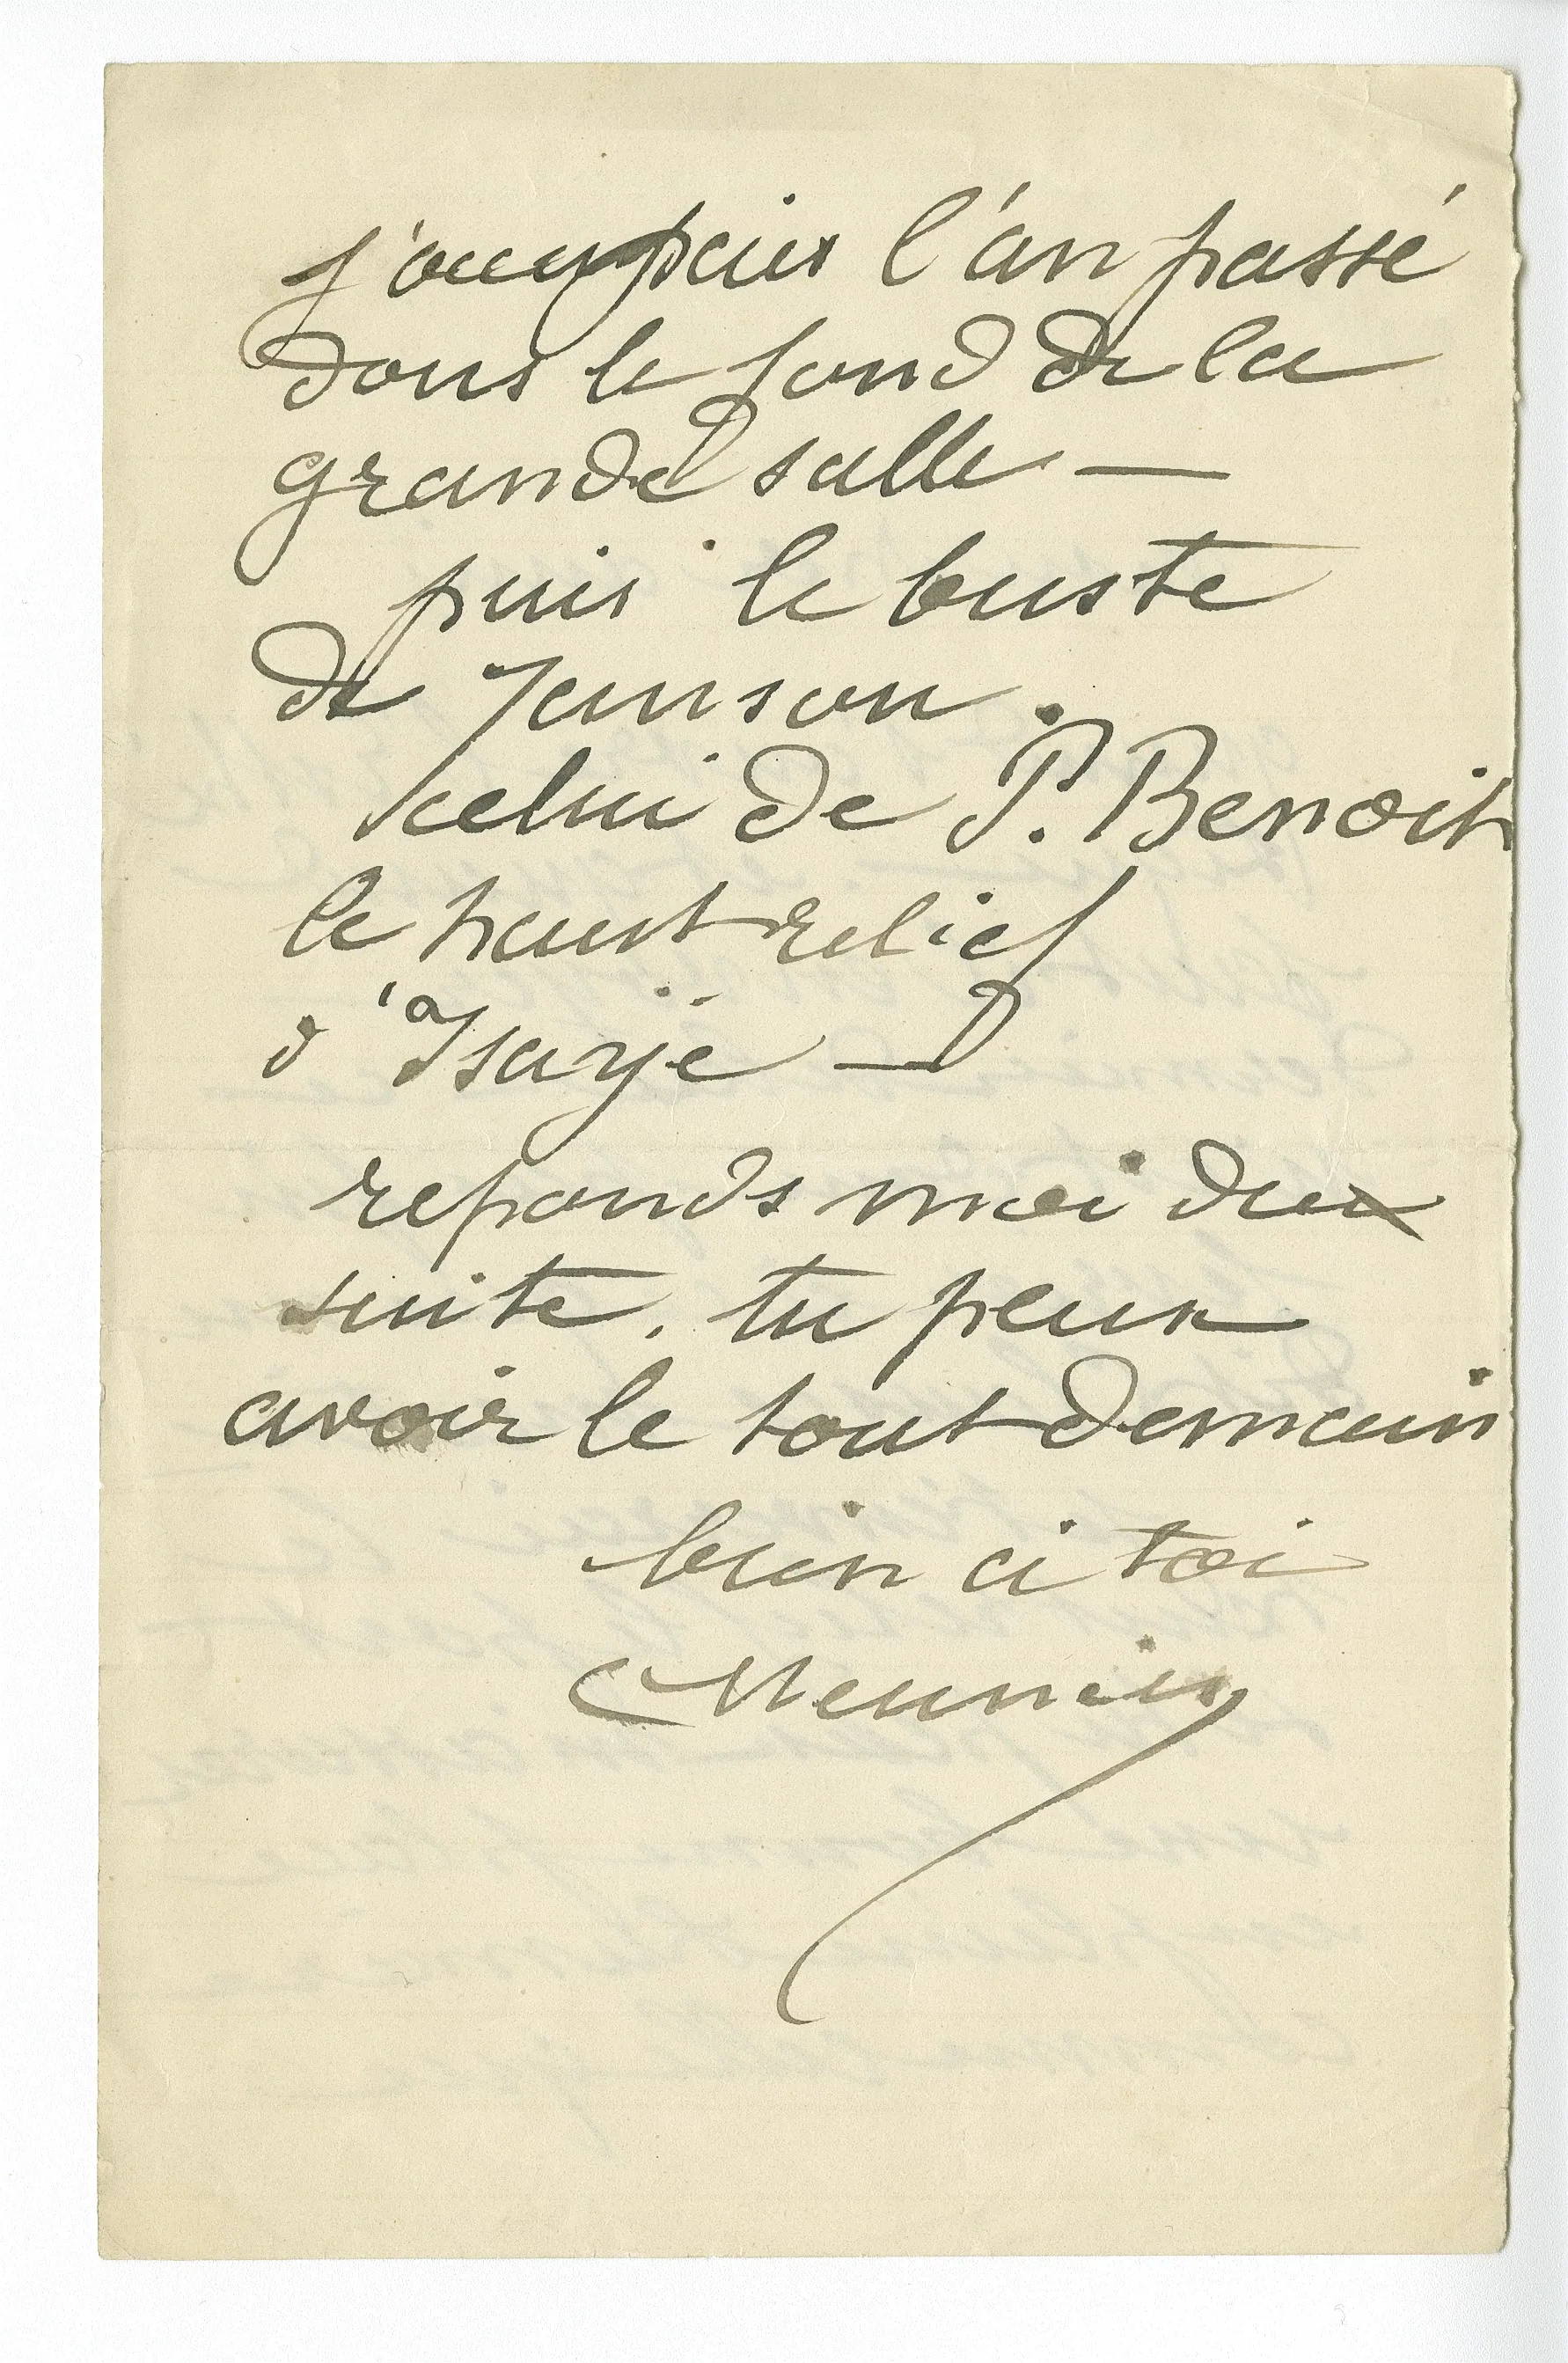 j'occupais l'an passé
dans le fond de la
grande salle —
puis le buste
de Janson.
celui de P. Benoit
le haut relief
d'Isaÿe —
reponds moi de
suite. tu peux
avoir le tout demain
bien à toi
CMeunier